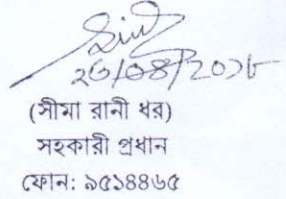 ২৬/০৪/২০১৮
(সীমা রানী ধর)
সহকারী প্রধান
ফোন: ৯৫১৪৪৬৫